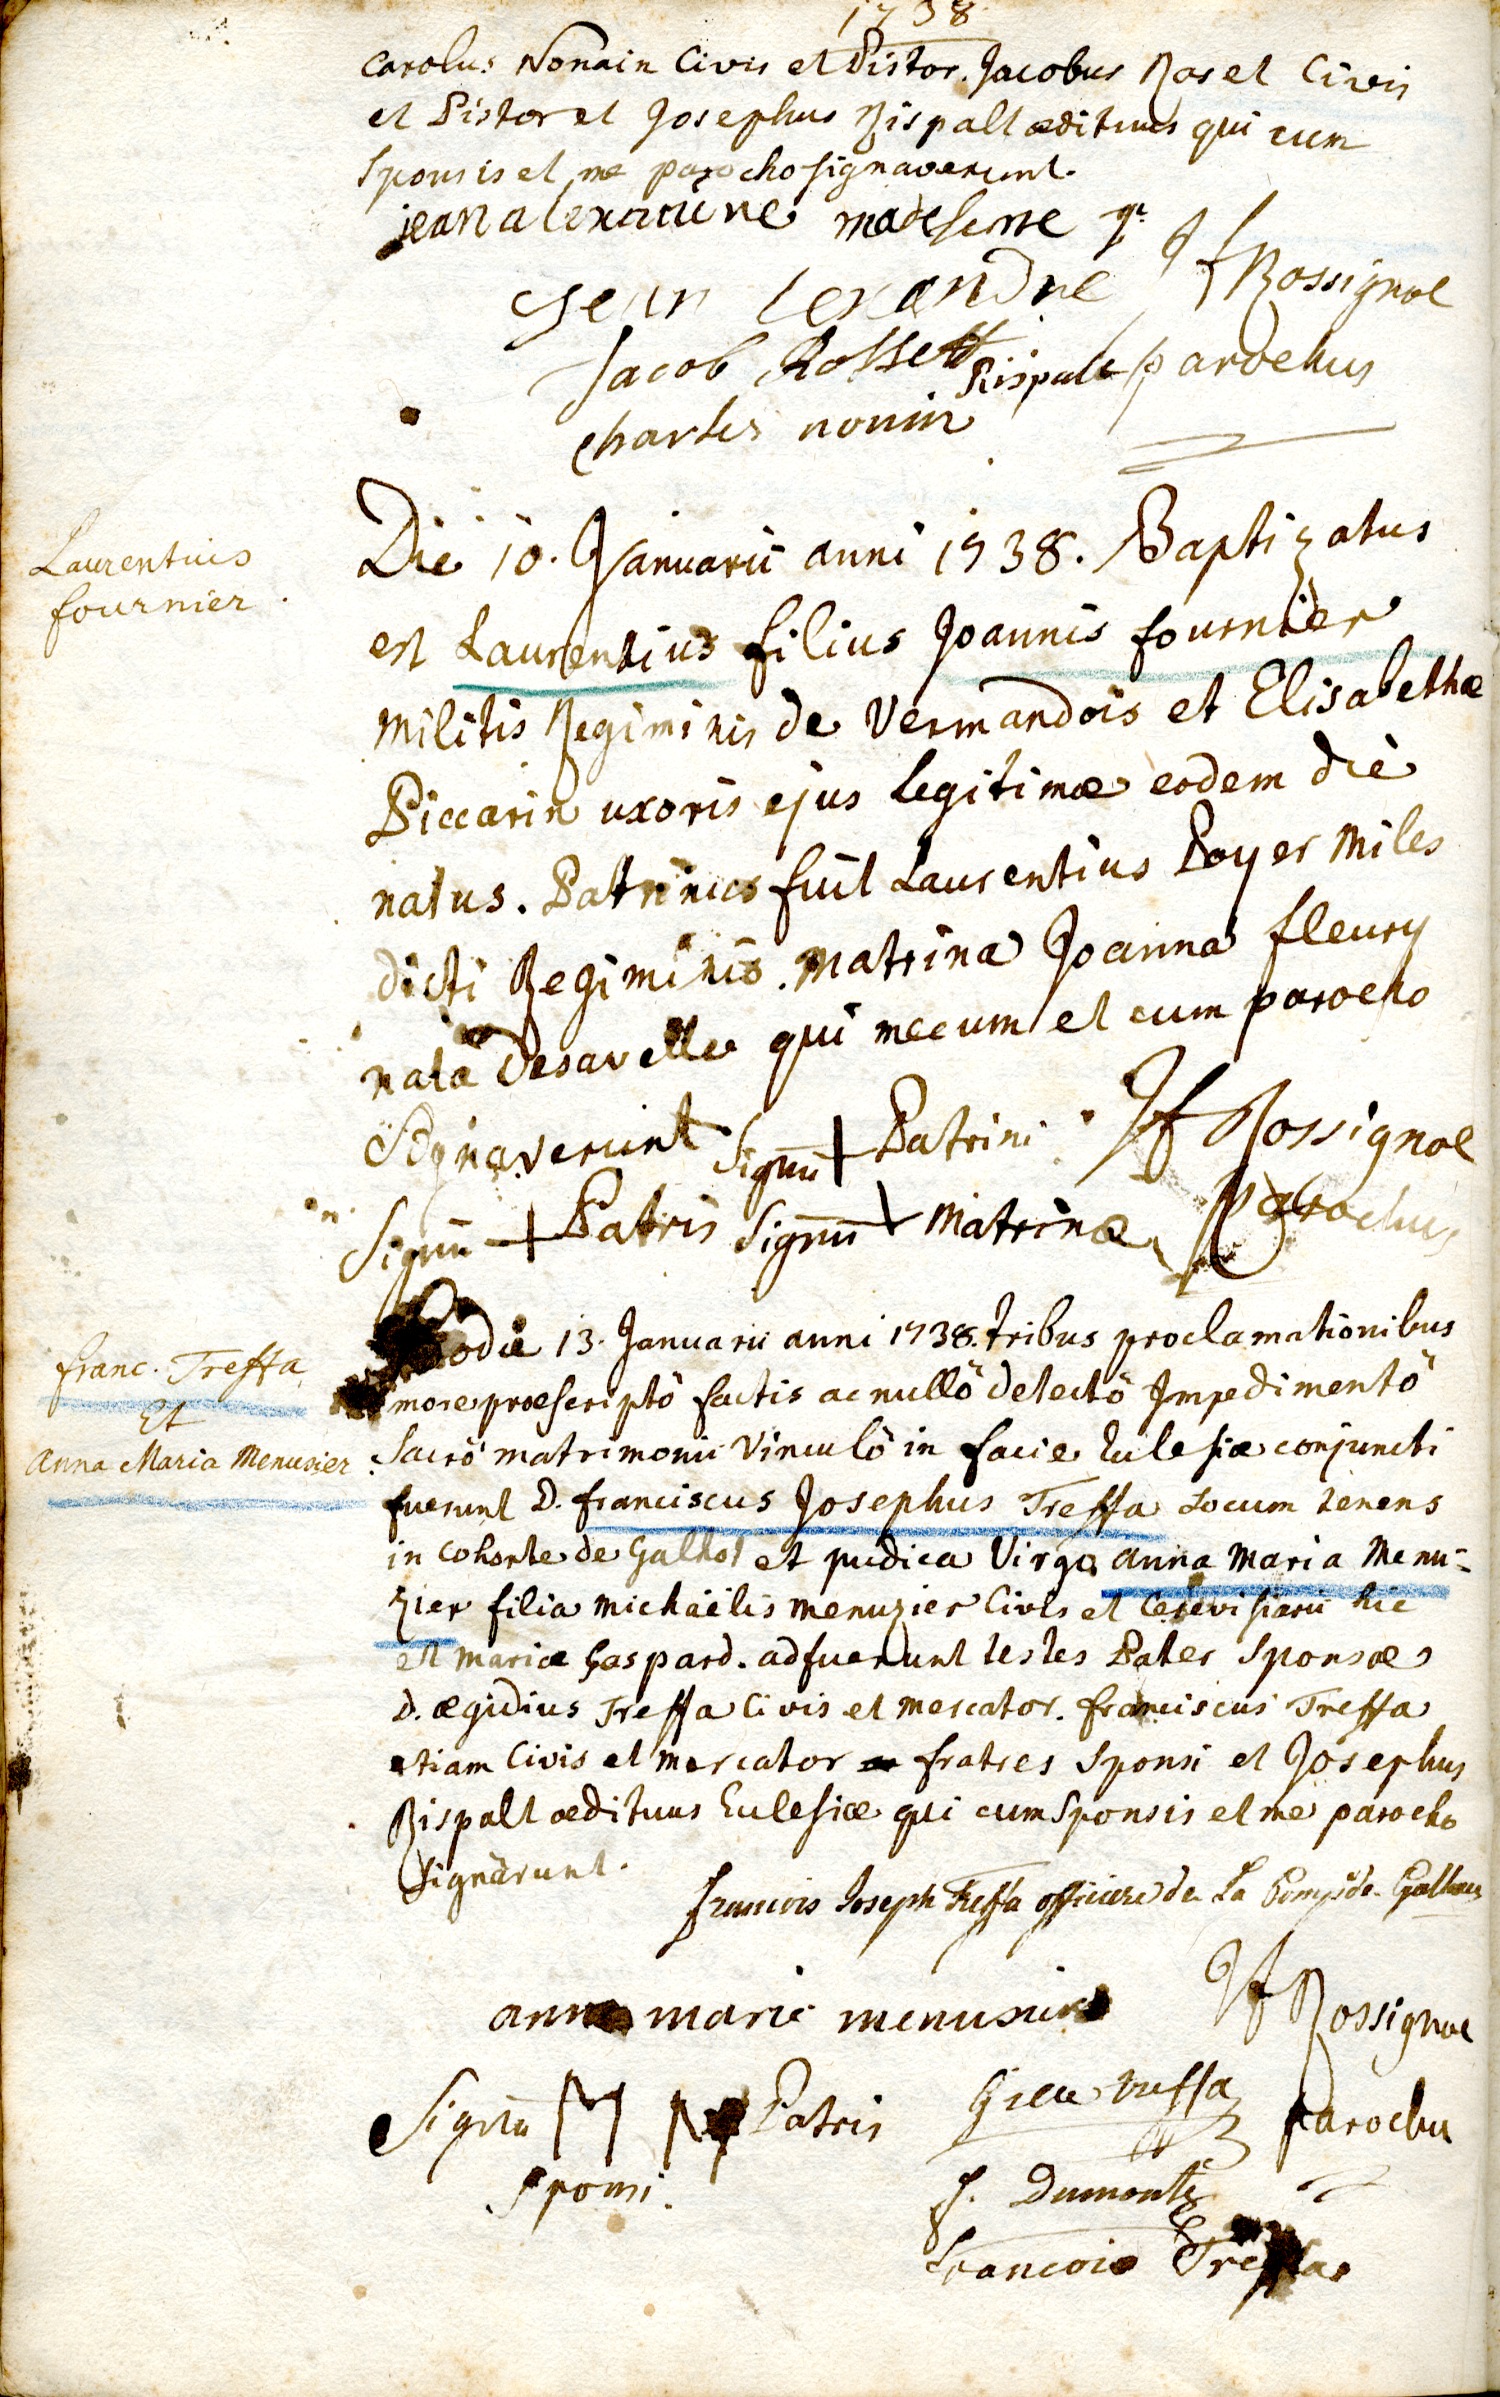 1738
Carolus Nonain Civis et Pistor. Jacobus Roset Civis
et Pistor et Josephus Rispalt ædituus qui cum
Sponsis et me parocho signaverunt.
jean alexandre madeleine
Jean lexandre Jf Rossignol
Jacob Rossett Rispalt parochus
charles nonin
Laurentius
fournier
Die 10. Januarii anni 1738. Baptizatus
est Laurentius filius Joannis fournier
Militis Regiminis de Vermandois et Elisabethæ
Piccarin uxoris ejus legitimæ eodem die
natus. Patrinus fuit Laurentius Poyer Miles
dicti Regiminis. Matrina Joanna fleury
nata Desavelle qui mecum et cum parocho
Signaverunt Signū + Patrini Jf Rossignol
Signū + Patris Signū + Matrinæ Parochus
franc. Treffa
Et
Anna Maria Menusier
Hodie 13. Januarii anni 1738. tribus proclamationibus
more præscriptô factis ac nullô detectô Impedimentô
Sacrô matrimonii Vinculô in facie Eclesiæ conjuncti
fuerunt D. franciscus Josephus Treffa Locum tenens
in Cohorte de Galhot et pudica Virgo anna Maria Menu-
zier filia Michaëlis Menuzier Civis et Cerevisiarii hic
et Mariæ Gaspard. adfuerunt testes Pater Sponsæ
D. ægidius Treffa Civis et Mercator. franciscus Treffa
etiam Civis et Mercator fratres Sponsi et Josephus
Rispalt ædituus Eclesiæ qui cum Sponsis et me parocho
Signârunt.
francois Joseph Treffa officiere de La Comp de Galhau
anne marie menusier Jf Rossignol
Signū M Patris Gille treffa Parochu
Sponsi. J. Dumonts
Francois Treffas